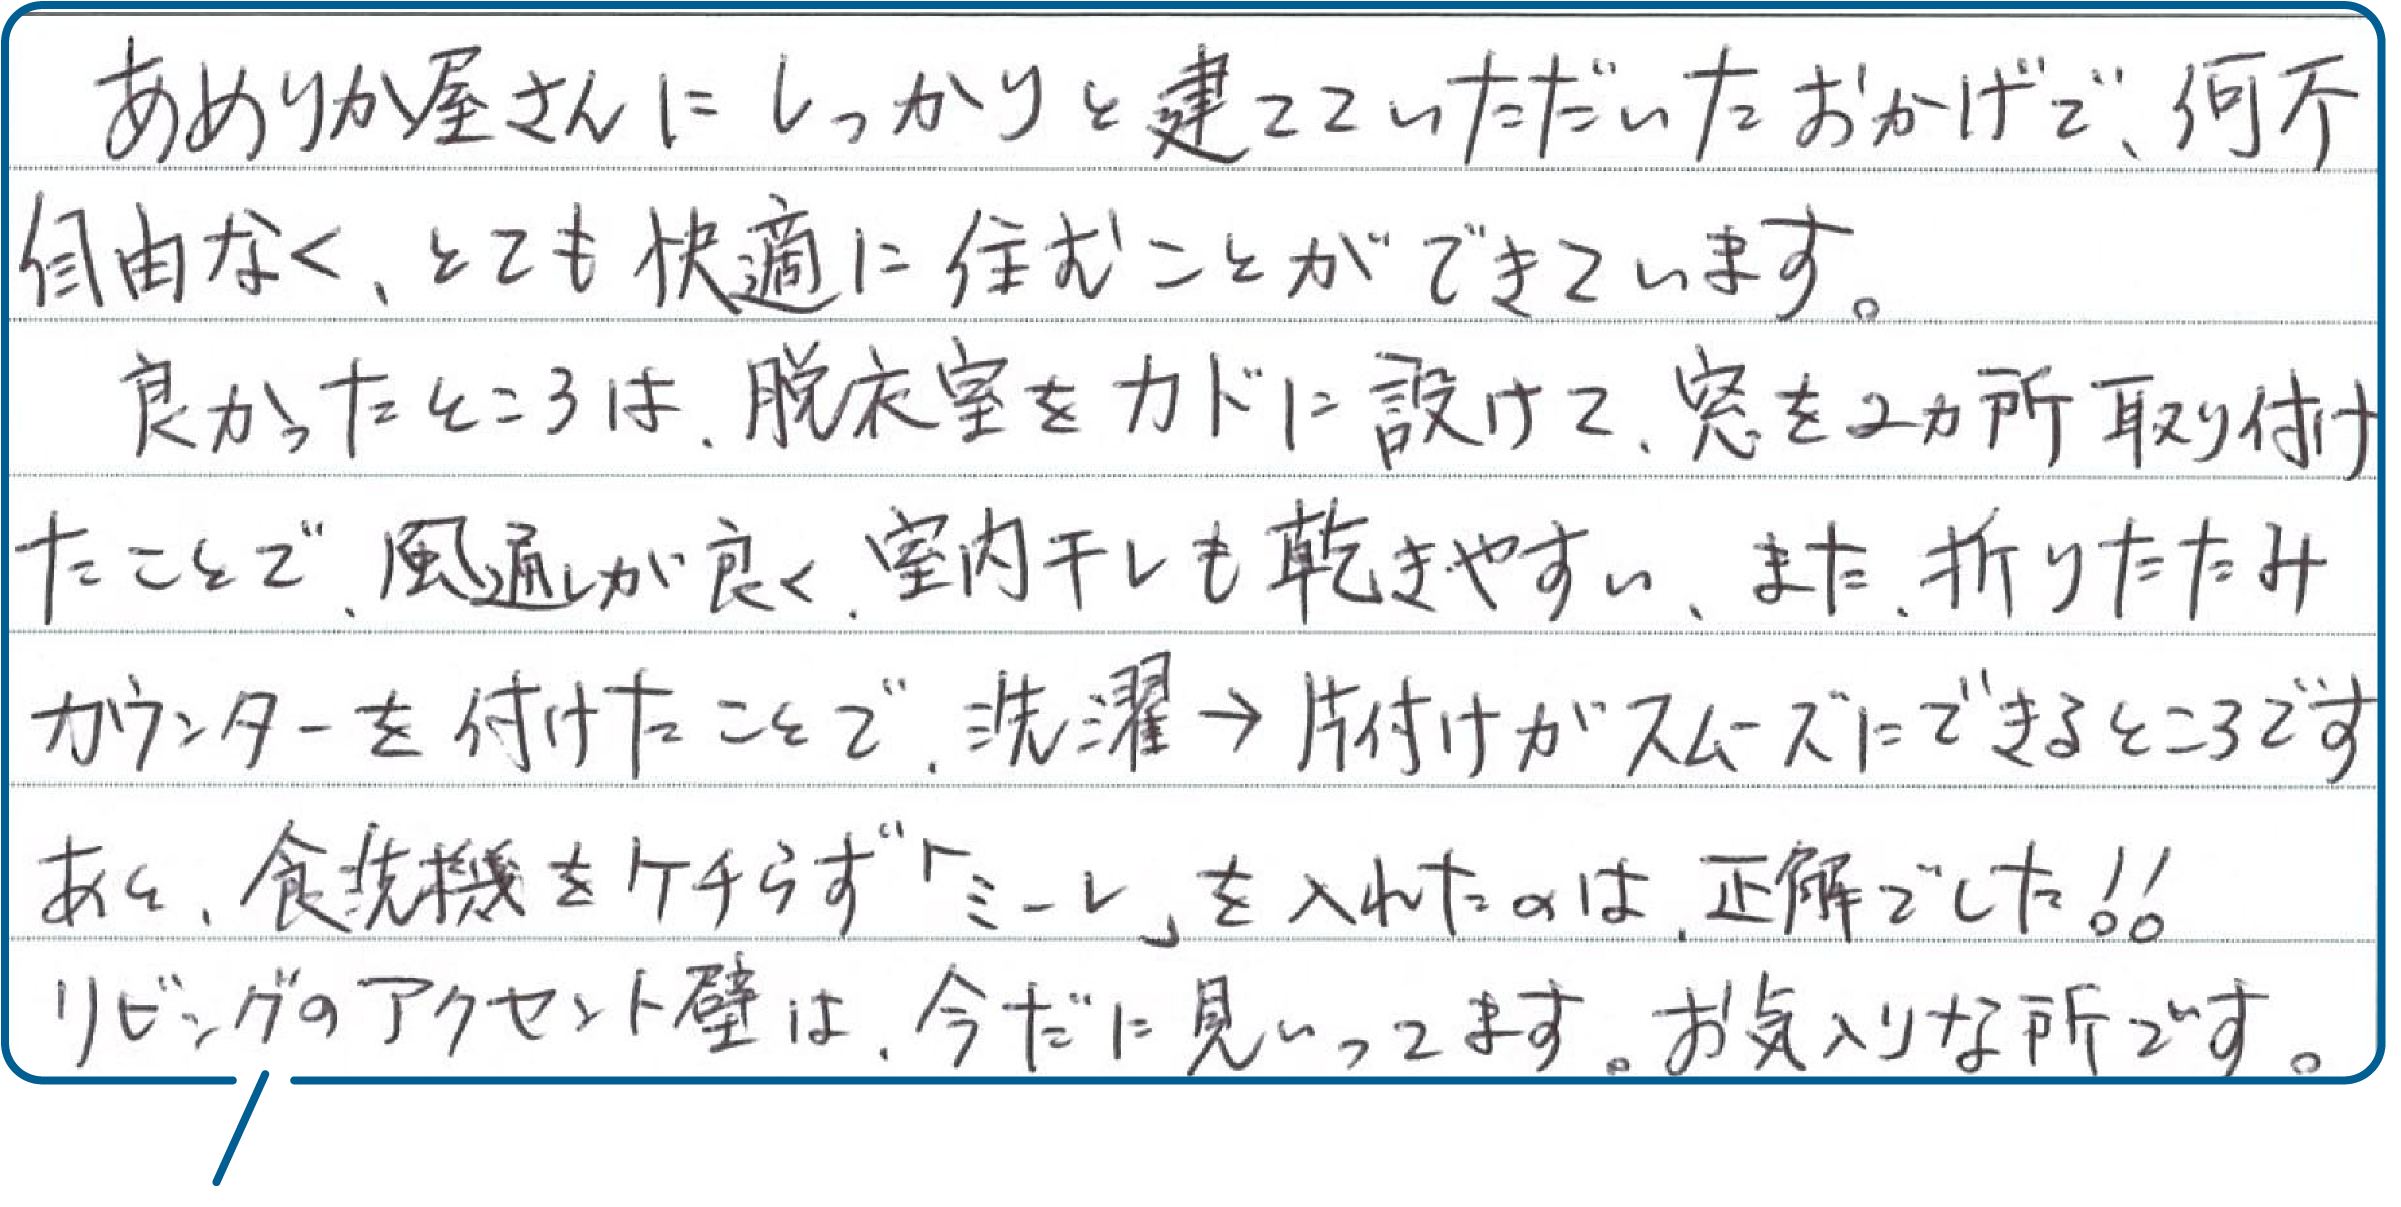 あめりか屋さんにしっかりと建てていただいたおかげで、何不
自由なく、とても快適に住むことができています。
良かったところは、脱衣室をカドに設けて、窓を2ヵ所取り付け
たことで、風通しが良く、室内干しも乾きやすい、また、折りたたみ
カウンターを付けたことで、洗濯→片付けがスムーズにできるところです
あと、食洗機をケチらず「ミーレ」を入れたのは、正解でした!!
リビングのアクセント壁は、今だに見いってます。お気入りな所です。